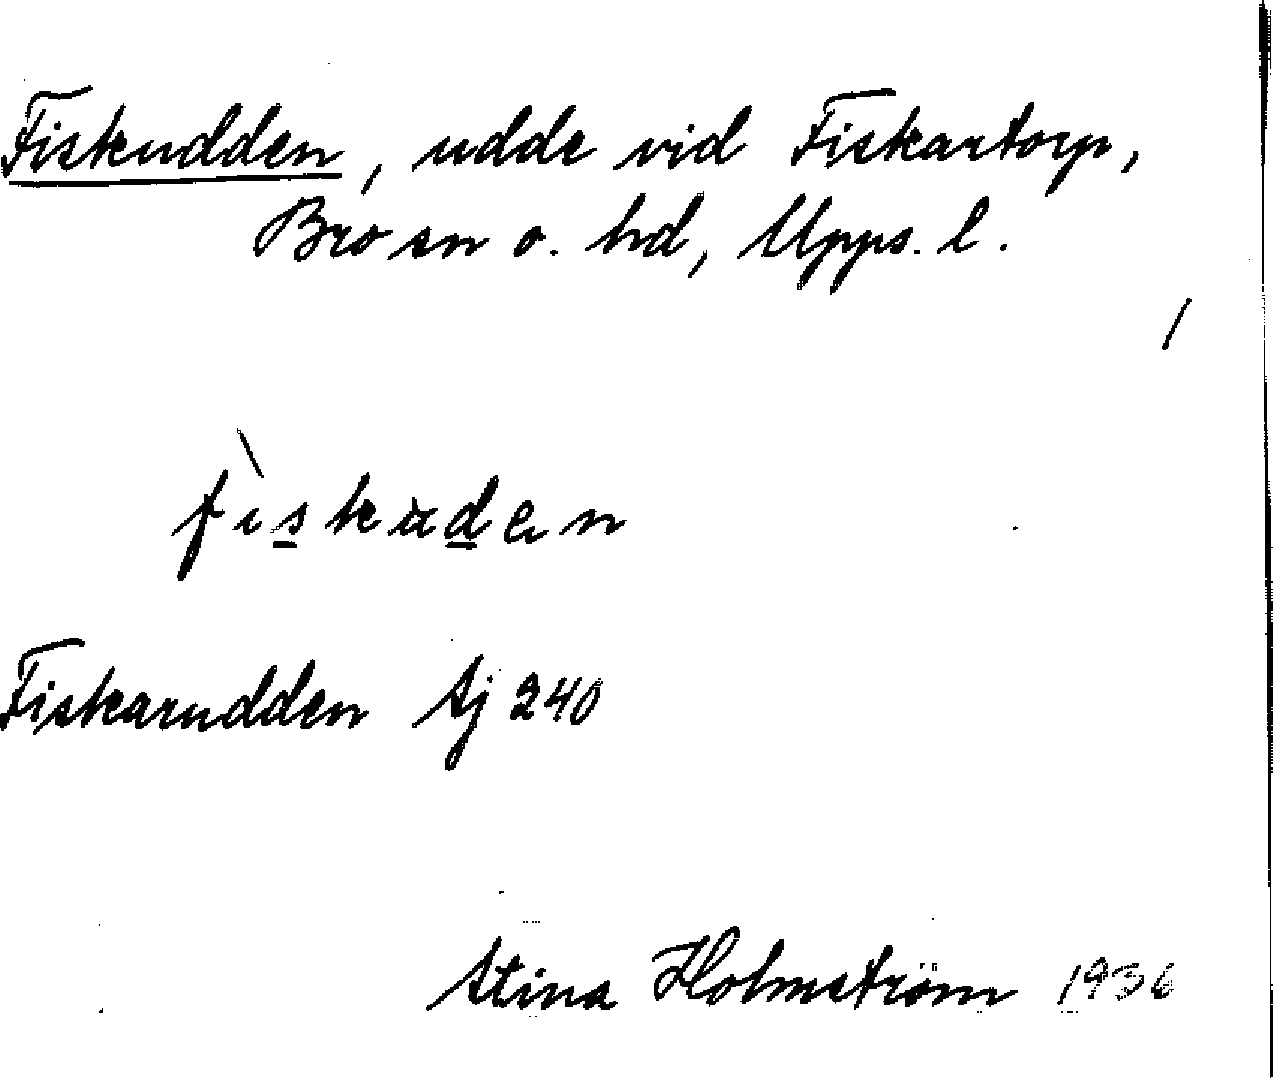 Fiskudden, udde vid Fiskartorp,
Bro sn o. hd, Upps. l.
/
fìskùden
Fiskarudden Sj 240
Stina Holmström 1936